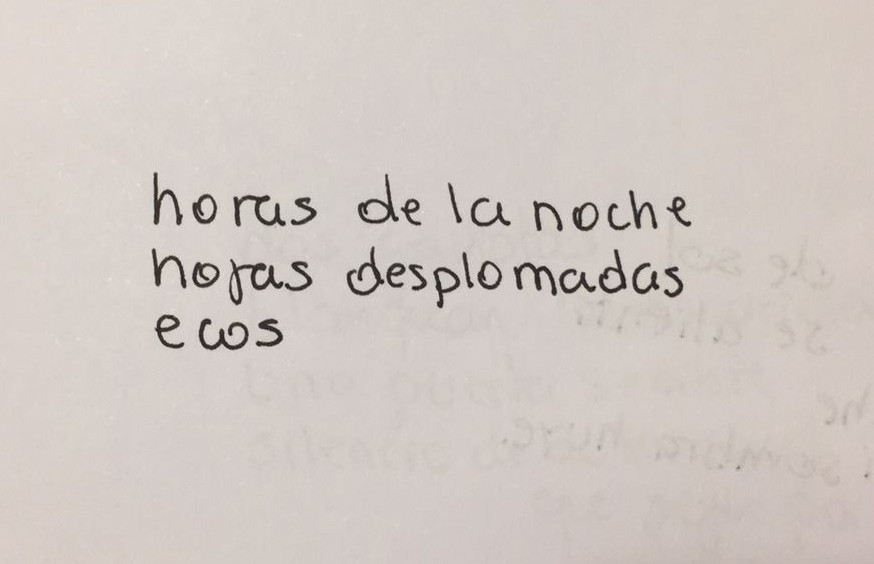 horas de la noche
hojas desplomadas
ecos